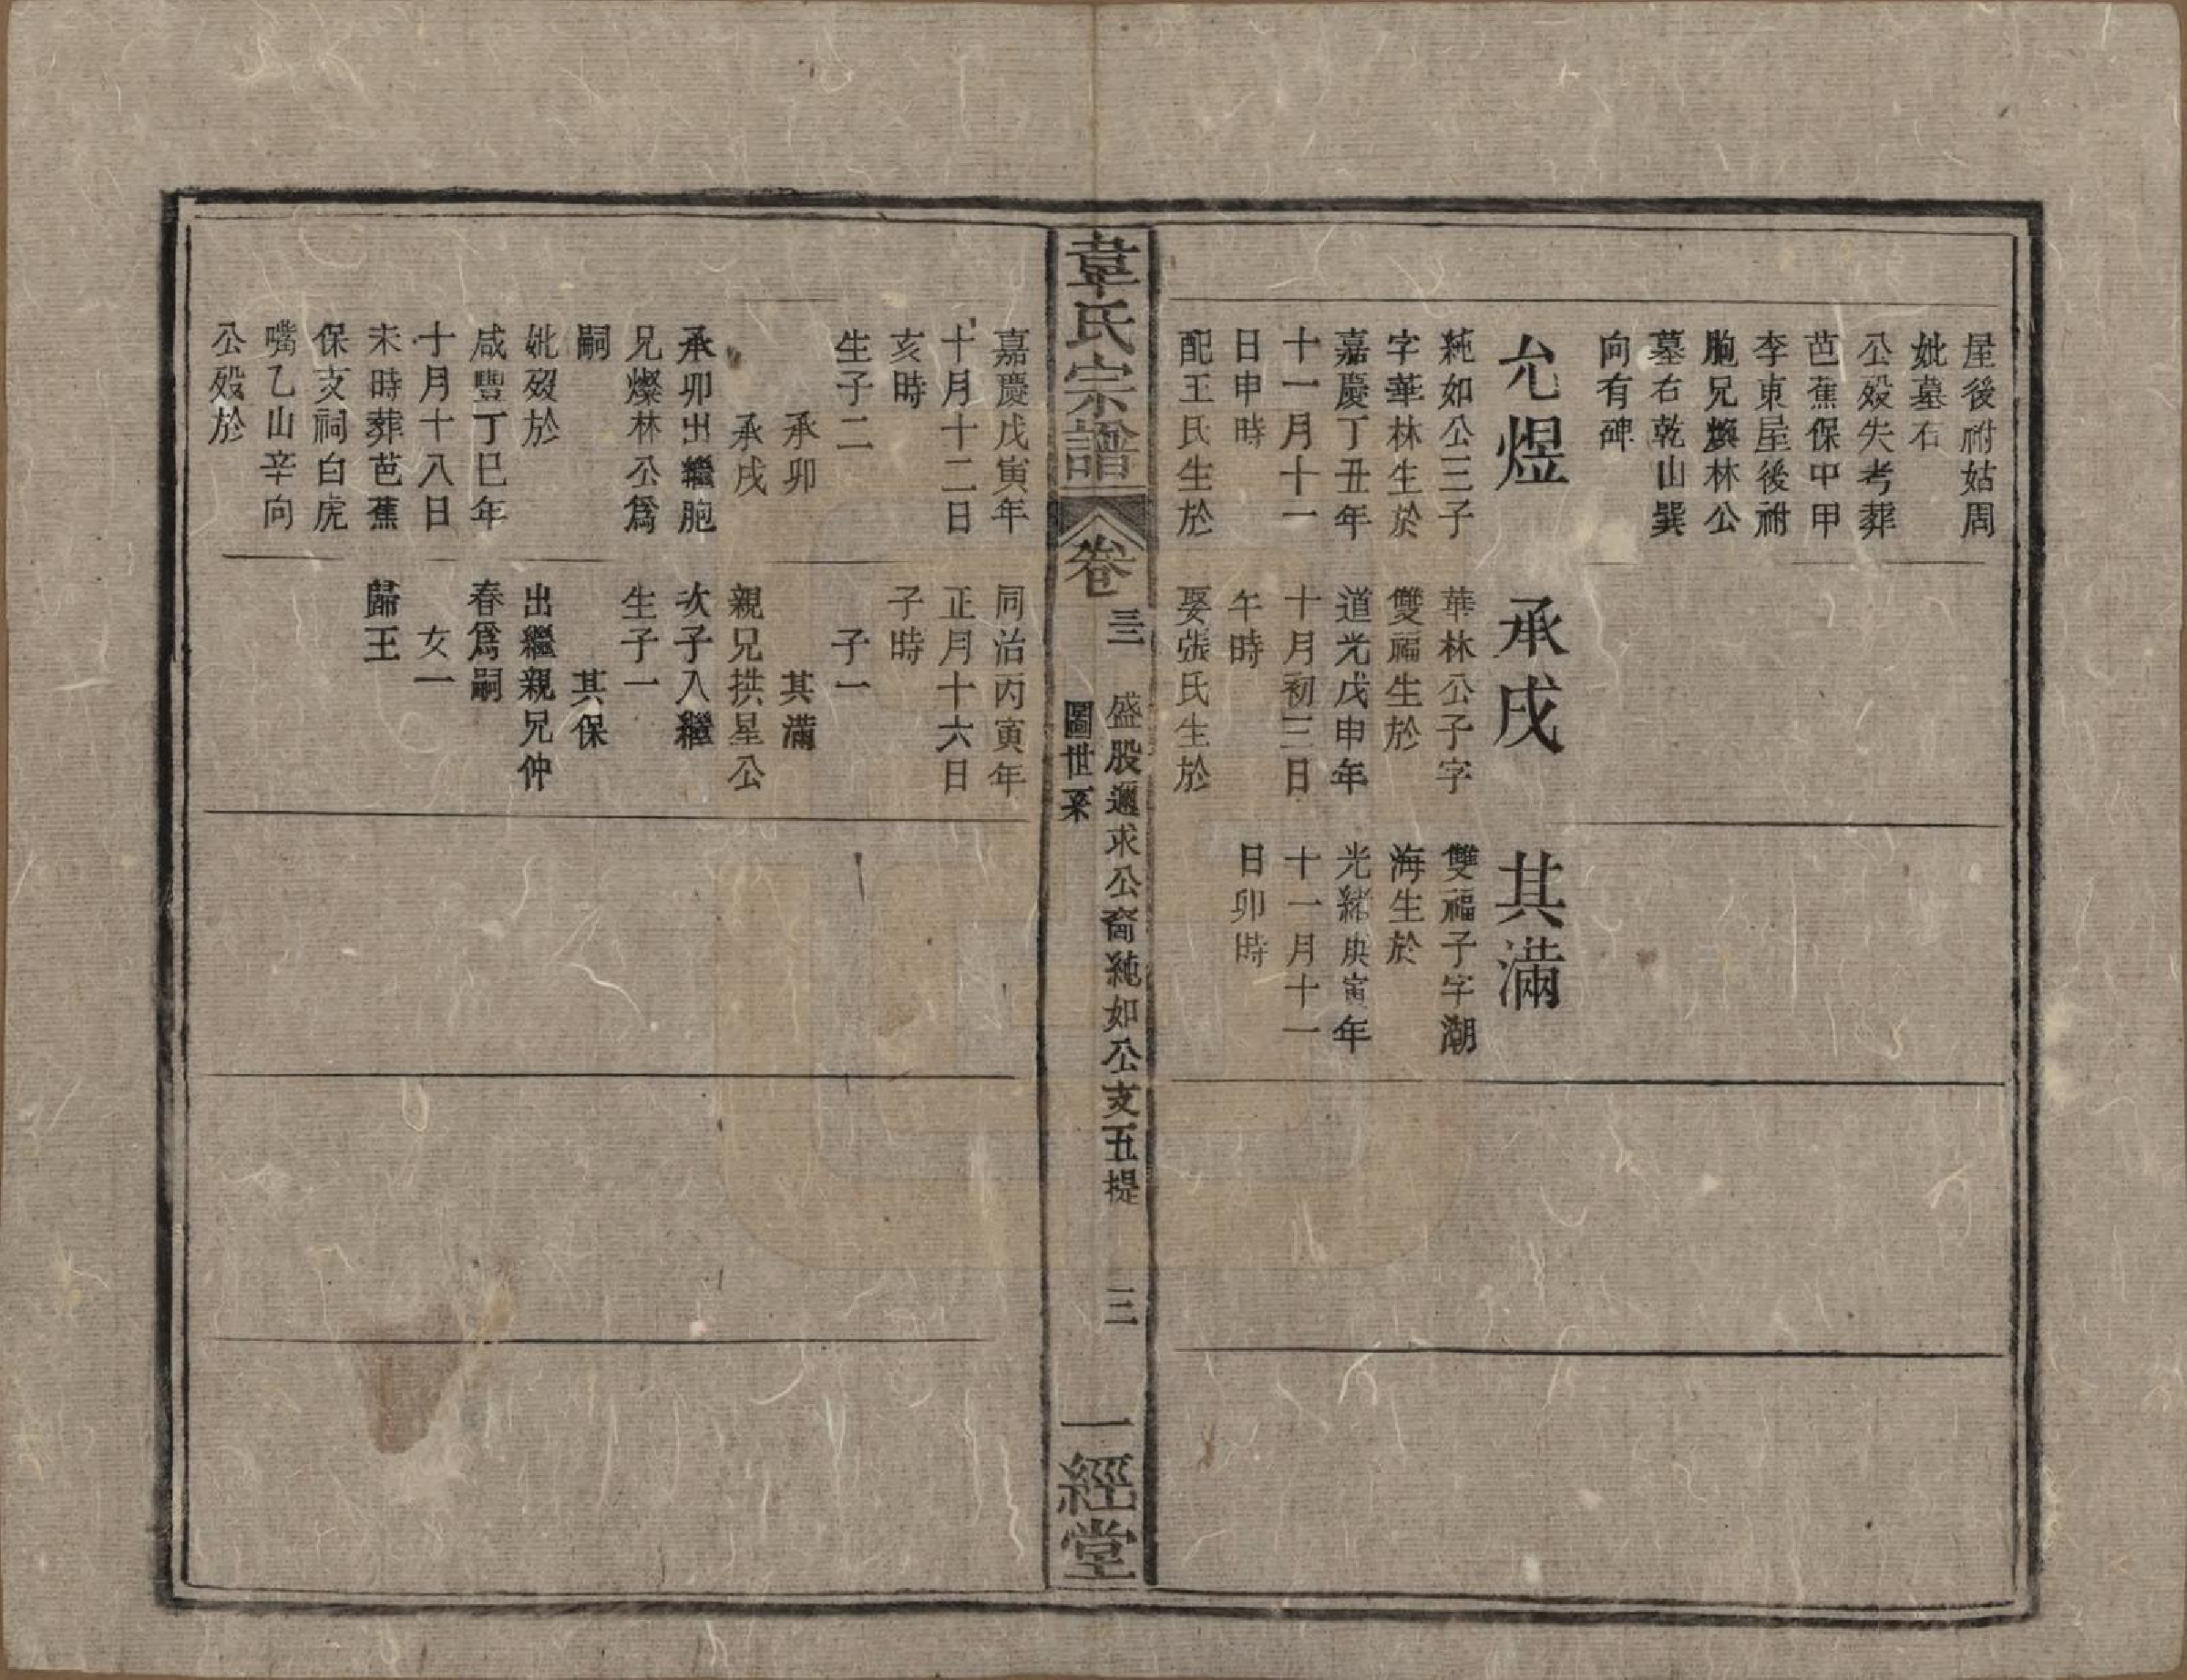 屋後祔姑周
妣墓右
公歿失考葬
芭蕉保中甲
李東屋後祔
胞兄煥林公
墓右乾山巽
向有碑
允煜
純如公三子
字華林生於
嘉慶丁丑年
十一月十一
日申時
配王氏生於
承戌
華林公子字
雙福生於
道光戊申年
十月初三日
午時
娶張氏生於
其滿
雙福子字潮
海生於
光緒庚寅年
十一月十一
日卯時
韋氏宗譜
卷
三
盛股邇求公裔純如公支五提
圖世系
三
一經堂
嘉慶戊寅年
十月十二日
亥時
生子二
承卯
承戌
承卯出繼胞
兄燦林公爲
嗣
妣歿於
咸豐丁巳年
十月十八日
未時葬芭蕉
保支祠白虎
嘴乙山辛向
公歿於
同治丙寅年
正月十六日
子時
子一
其滿
親兄拱星公
次子入繼
生子一
其保
出繼親兄仲
春爲嗣
女一
歸王